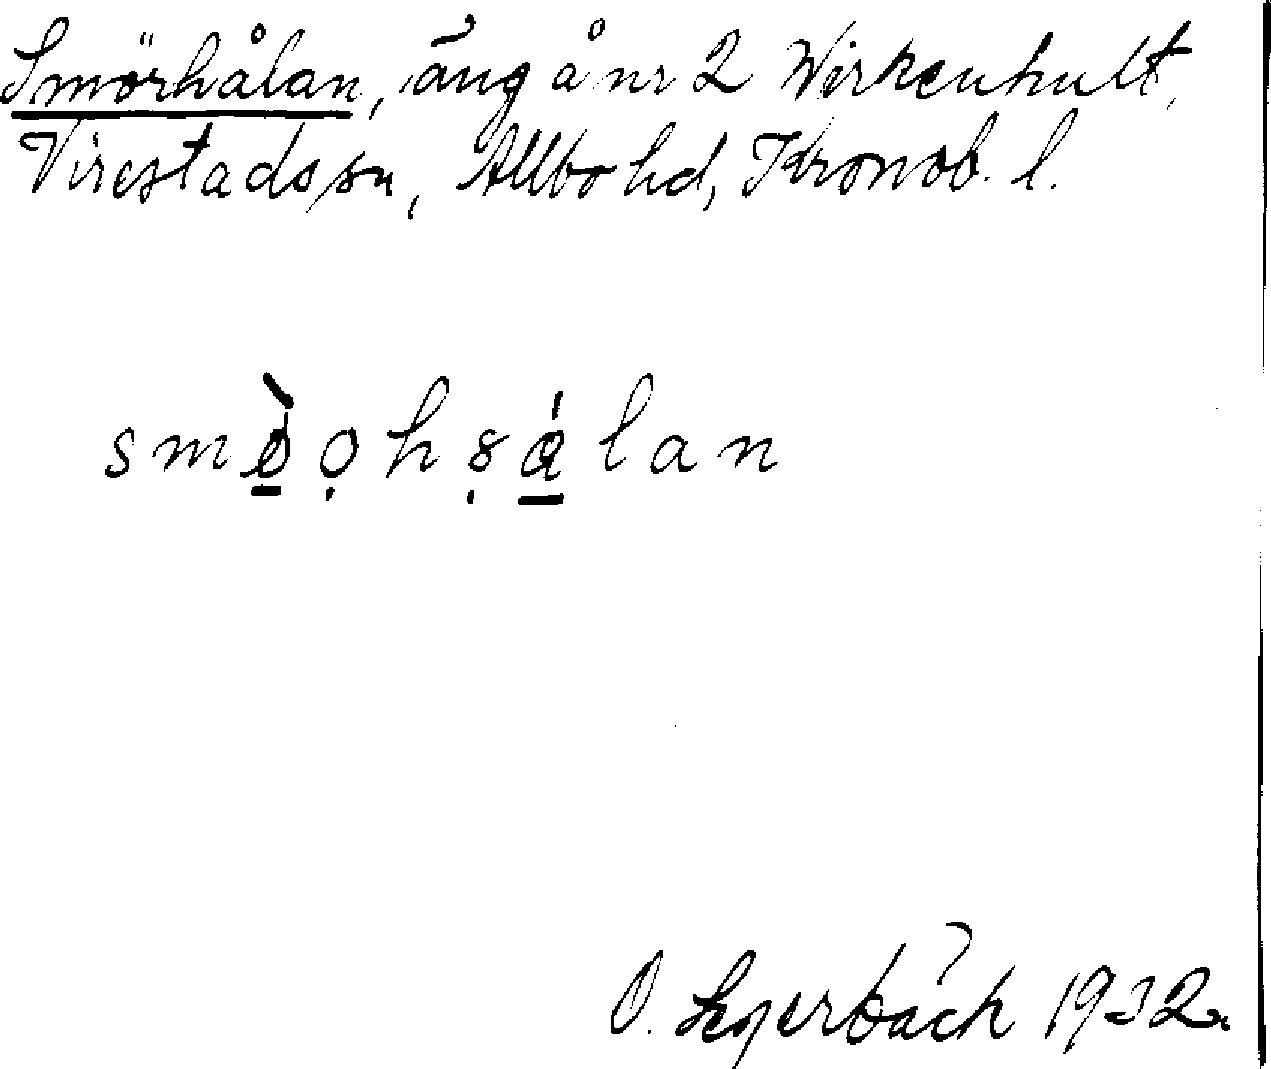 Smörhålan, äng å nr 2 Wirkenhult,
Virestads sn, Allbo hd, Kronob. l.
smò̲o̤hṣá̲lan
O. 1932.